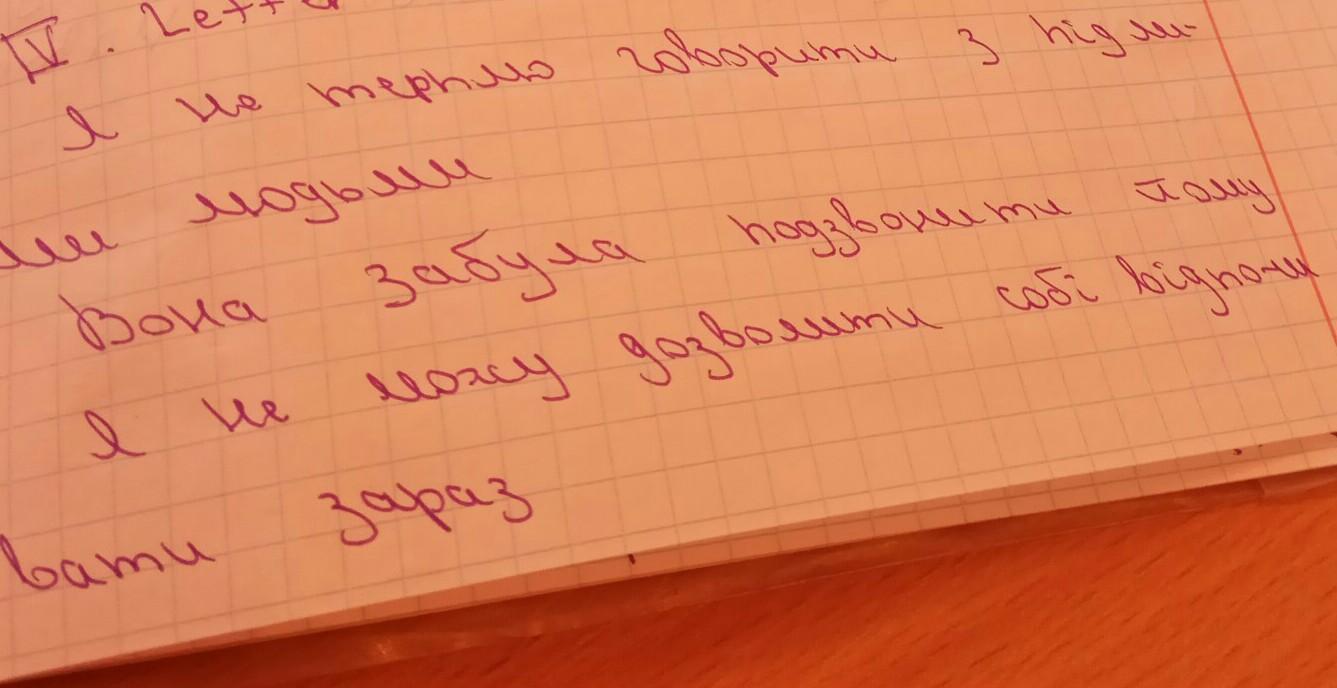 IV. Lette
Я не терплю говорити з підли-
ми людьми
Вона забула подзвонити йому
Я не можу дозволити собі відпочи
вати зараз